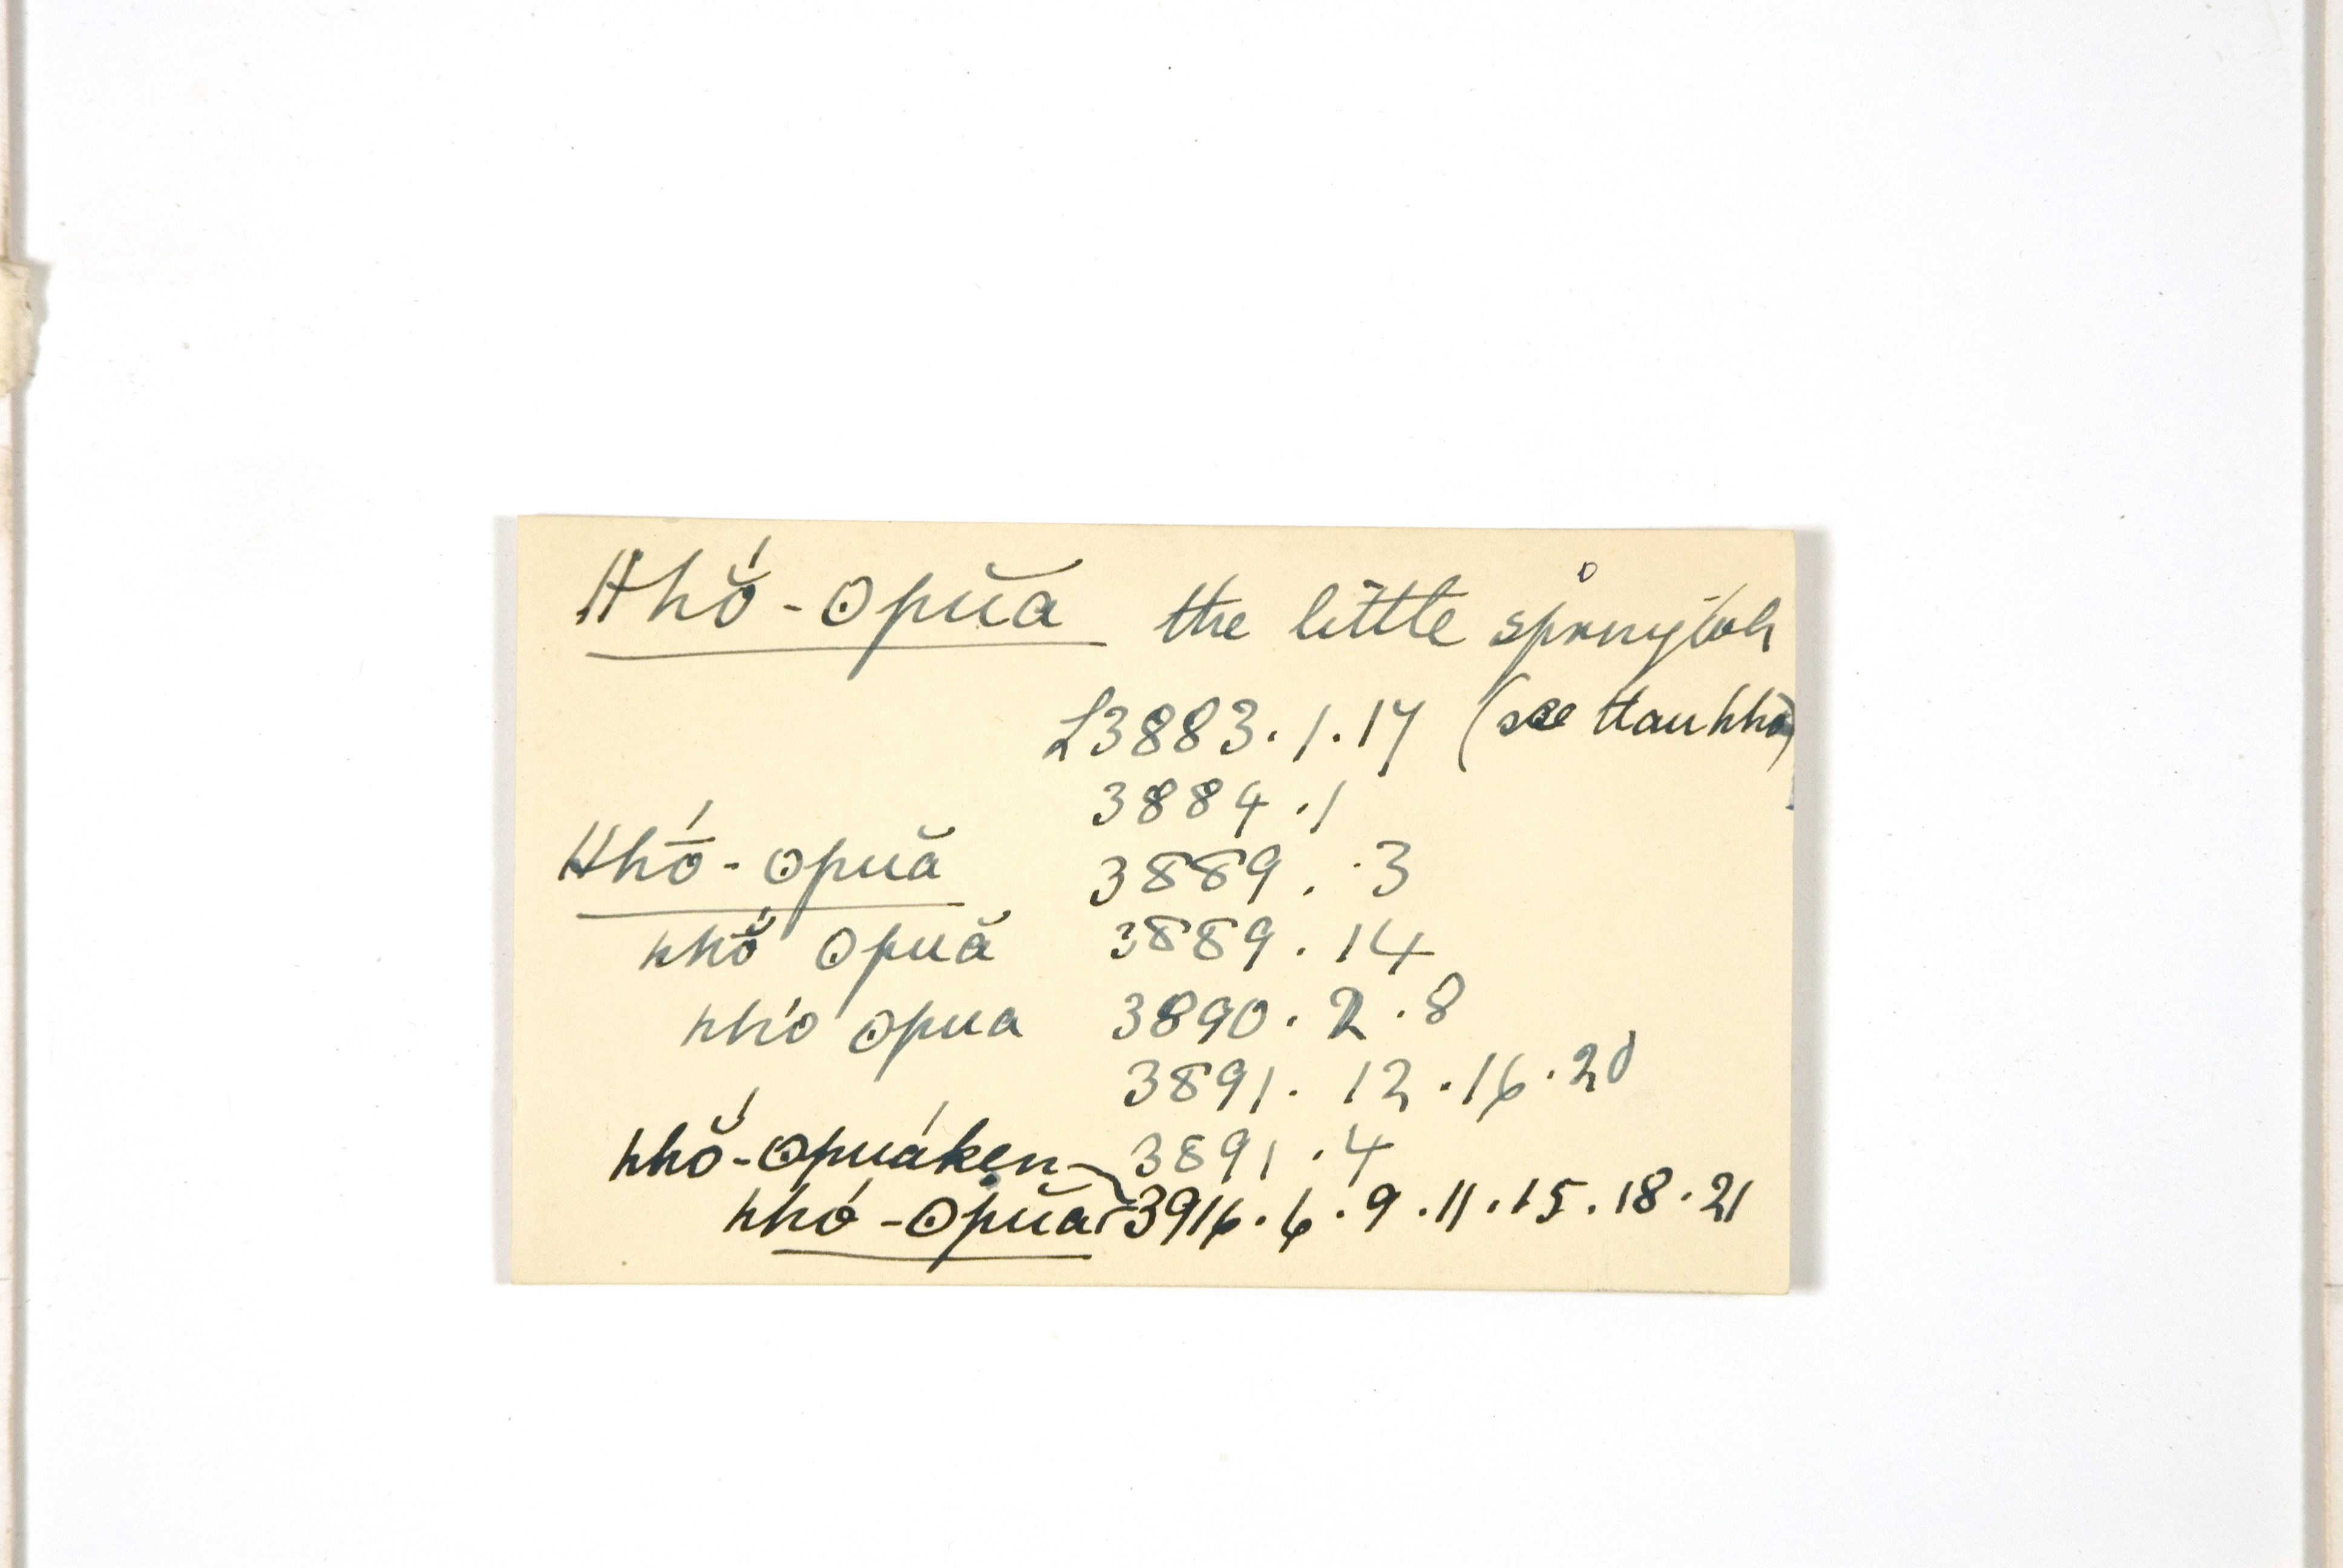 ǁhṓ̆-ʘpŭa the little springbok
L3883.1.17 (see ǁauhho)
3884.1
ǁhṓ-ʘpuă 3889.3
hhō̆ ʘpuă 3889.14
hhó ʘpua 3890.2.8
3891.12.16.20
hhŏ́-ʘpuáken 3891.4
hhó-ʘpŭa 3916.6.9.11.15.18.21